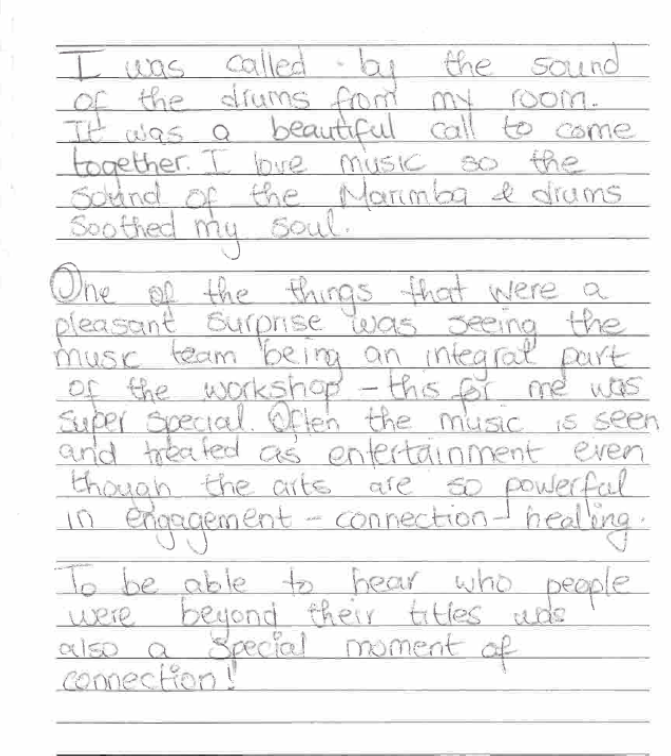 I was called by the sound
of the drums from my room.
It was a beautiful call to come
together. I love music so the
sound of the Marimba & drums
soothed my soul.
One of the things that were a
pleasant surprise was seeing the
music team being an integral part
of the workshop - this for me was
super special. Often the music is seen
and treated as entertainment even
though the arts are so powerful
in engagement - connection - healing.
To be able to hear who people
were beyond their titles was
also a special moment of
connection!